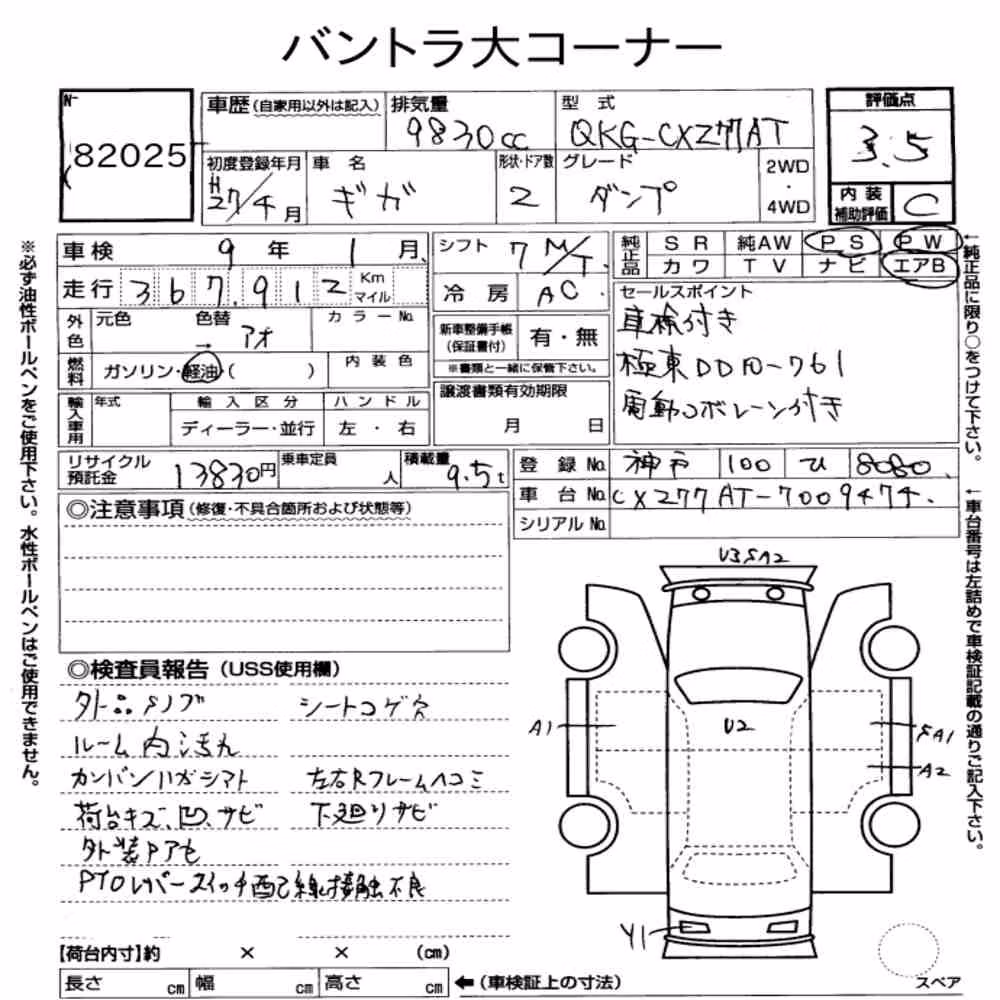 バントラ大コーナー
N-
82025
車歴(自家用以外は記入)
排気量 9830cc
型式 QKG-CXZ77AT
評価点 3.5
初度登録年月 H27/4月
車名 ギガ
形状・ドア数 2
グレード ダンプ
2WD・4WD
内装補助評価 C
車検 9年1月
シフト 7M/T
純正品 SR 純AW PS PW
カワ TV ナビ エアB
走行 367,912 Km マイル
冷房 AC
セールスポイント
車検付き
極東DD10-761
電動コボレーン付き
外色 元色 色替 → アオ カラーNo.
新車整備手帳(保証書付) 有・無
※書類と一緒に保管下さい。
燃料 ガソリン・軽油・( ) 内装色
譲渡書類有効期限
月 日
輸入車用 年式 輸入区分 ハンドル
ディーラー・並行 左・右
リサイクル預託金 13830円
乗車定員 人
積載量 9.5t
登録No. 神戸 100 ひ 8080
車台No. CXZ77AT-7009474
シリアルNo.
◎注意事項(修復・不具合箇所および状態等)
◎検査員報告(USS使用欄)
シートコゲ穴
ルーム内汚れ
カンバンハガシアト 左右Rフレームヘコミ
荷台キズ、凹、サビ 下廻りサビ
PTOレバースイッチ配線接触不良
【荷台内寸】約 × × (cm)
長さ cm 幅 cm 高さ cm
←(車検証上の寸法)
U3SA2
U2
A1
SA1
A2
Y1
スペア
※必ず油性ボールペンをご使用下さい。水性ボールペンはご使用できません。
←純正品に限り○をつけて下さい。
←車台番号は左詰めで車検証記載の通りご記入下さい。